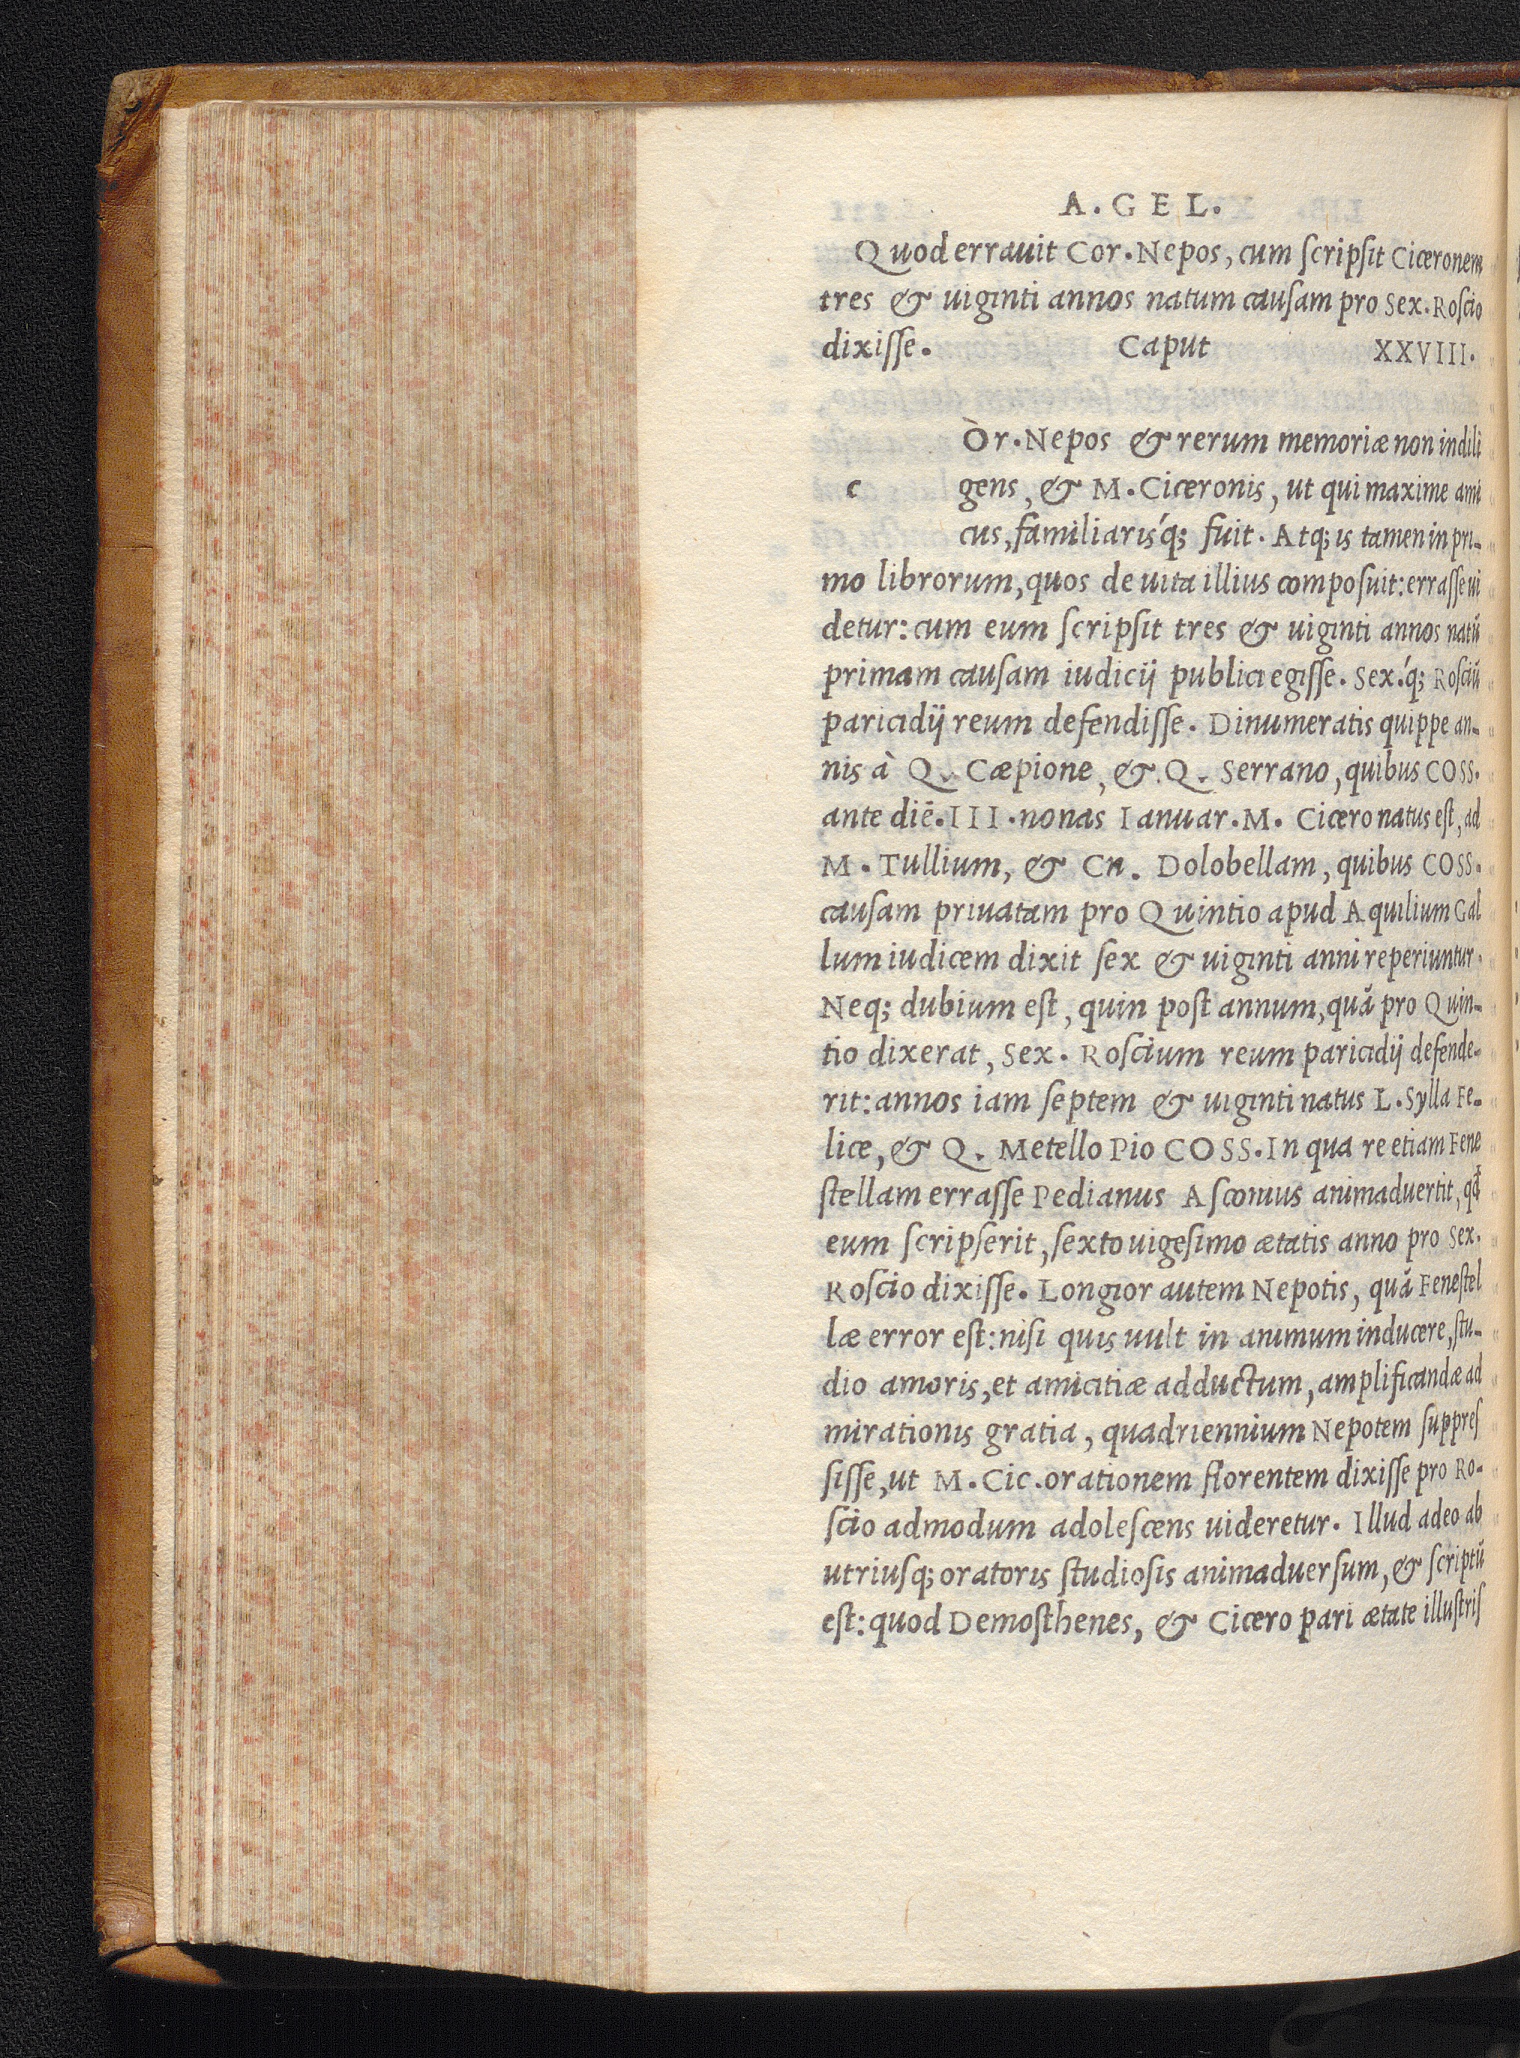 A. GEL.
Quod errauit Cor. Nepos, cum scripsit Ciceronem
tres & uiginti annos natum causam pro Sex. Roscio
dixisse. Caput XXVIII.
Òr. Nepos & rerum memoriæ non indili
c gens, & M. Ciceronis, ut qui maxime ami
cus, familiarisq́; fuit. Atq; is tamen in pri-
mo librorum, quos de uita illius composuit: errasse ui
detur: cum eum scripsit tres & uiginti annos natū
primam causam iudicij publici egisse. Sex.q́; Rosciū
paricidij reum defendisse. Dinumeratis quippe an-
nis à Q. Cæpione, & Q. Serrano, quibus COSS.
ante diē. III. nonas Ianuar. M. Cicero natus est, ad
M. Tullium, & Cn. Dolobellam, quibus COSS.
causam priuatam pro Quintio apud Aquilium Gal
lum iudicem dixit sex & uiginti anni reperiuntur.
Neq; dubium est, quin post annum, quā pro Quin-
tio dixerat, Sex. Roscium reum paricidij defende-
rit: annos iam septem & uiginti natus L. Sylla Fe-
lice, & Q. Metello Pio COSS. In qua re etiam Fene
stellam errasse Pedianus Asconius animaduertit, qđ
eum scripserit, sexto uigesimo ætatis anno pro Sex.
Roscio dixisse. Longior autem Nepotis, quā Fenestel
læ error est: nisi quis uult in animum inducere, stu-
dio amoris, et amicitiæ adductum, amplificandæ ad
mirationis gratia, quadriennium Nepotem suppres
sisse, ut M. Cic. orationem florentem dixisse pro Ro-
scio admodum adolescens uideretur. Illud adeo ab
utriusq; oratoris studiosis animaduersum, & scriptū
est: quod Demosthenes, & Cicero pari ætate illustris